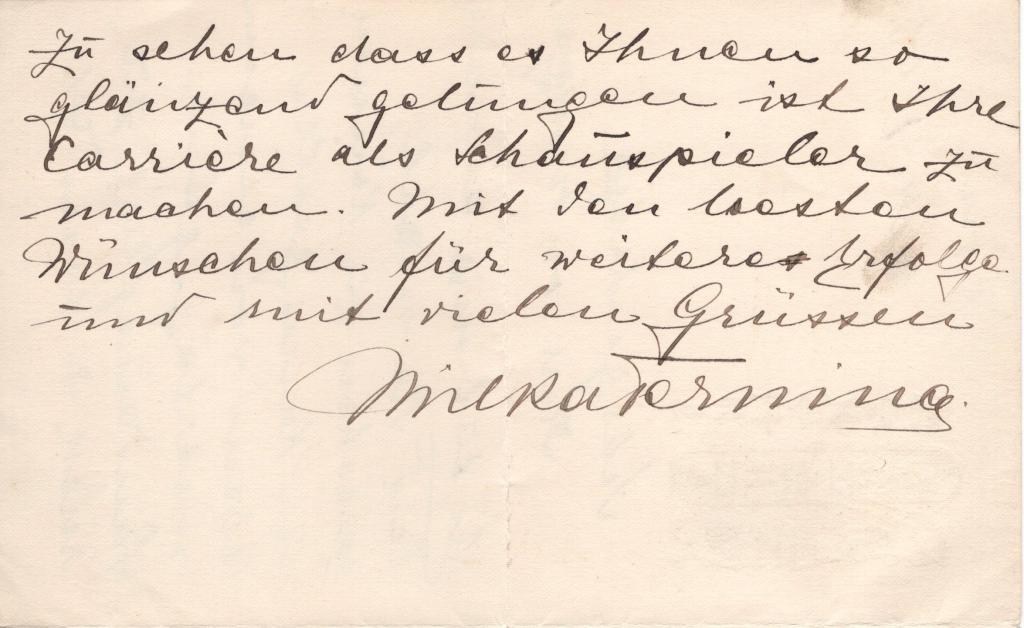 zu sehen dass es Ihnen so
glänzend gelungen ist Ihre
Carrière als Schauspieler zu
machen. Mit den besten
Wünschen für weitere Erfolge
und mit vielen Grüssen
Milka Ternina.